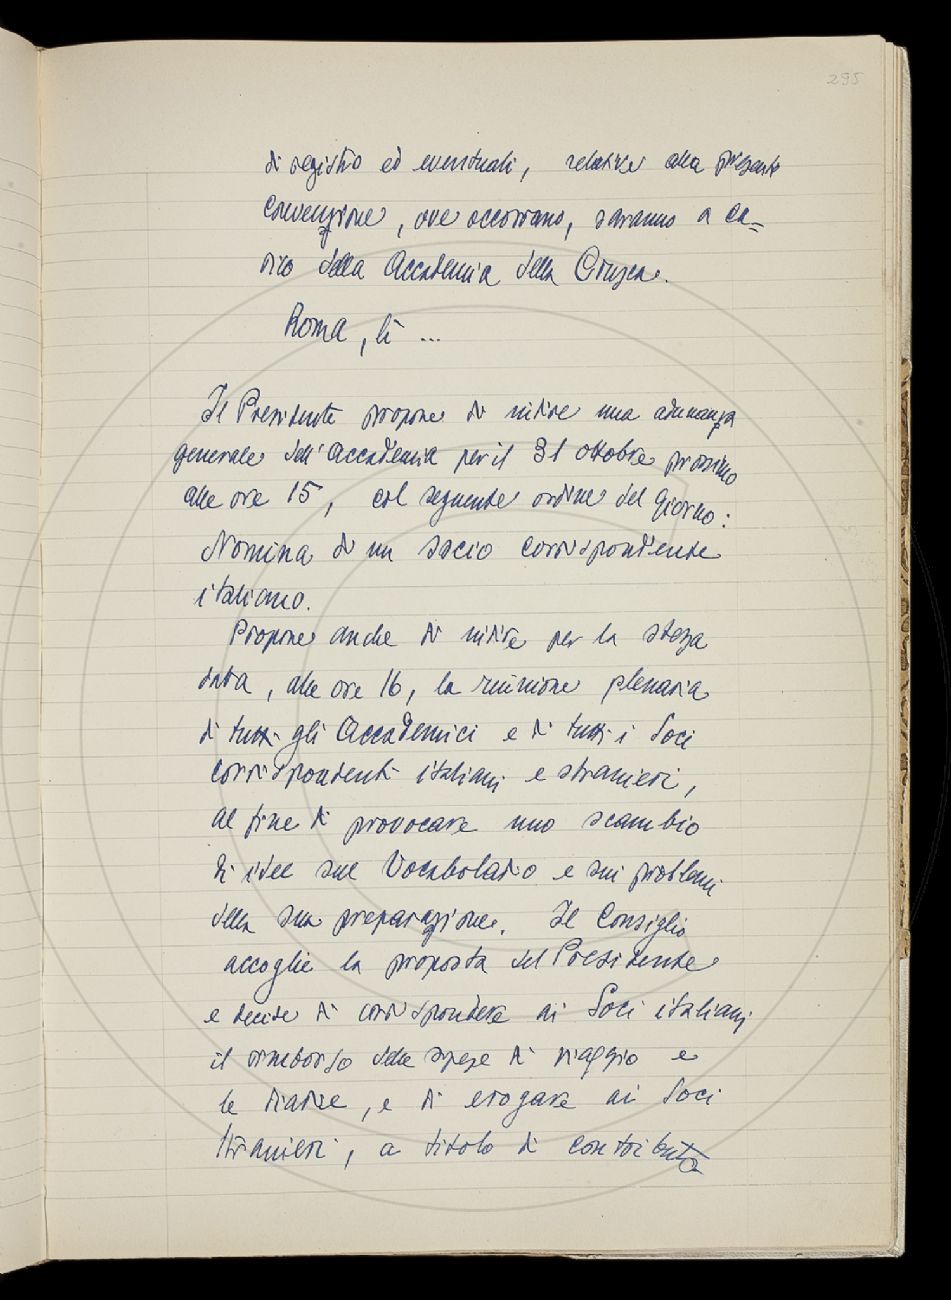 295
di registro ed eventuali, relative alla presente
convenzione, ove occorrano, saranno a ca=
rico della Accademia della Crusca.
Roma, lì ...
Il Presidente propone di indire una adunanza
generale dell'Accademia per il 31 ottobre prossimo
alle ore 15, col seguente ordine del giorno:
Nomina di un socio corrispondente
italiano.
Propone anche di indire per la stessa
data, alle ore 16, la riunione plenaria
di tutti gli Accademici e di tutti i Soci
corrispondenti italiani e stranieri,
al fine di provocare uno scambio
di idee sul Vocabolario e sui problemi
della sua preparazione. Il Consiglio
accoglie la proposta del Presidente
e decide di corrispondere ai Soci italiani
il rimborso delle spese di viaggio e
le diarie, e di erogare ai Soci
stranieri, a titolo di contributo